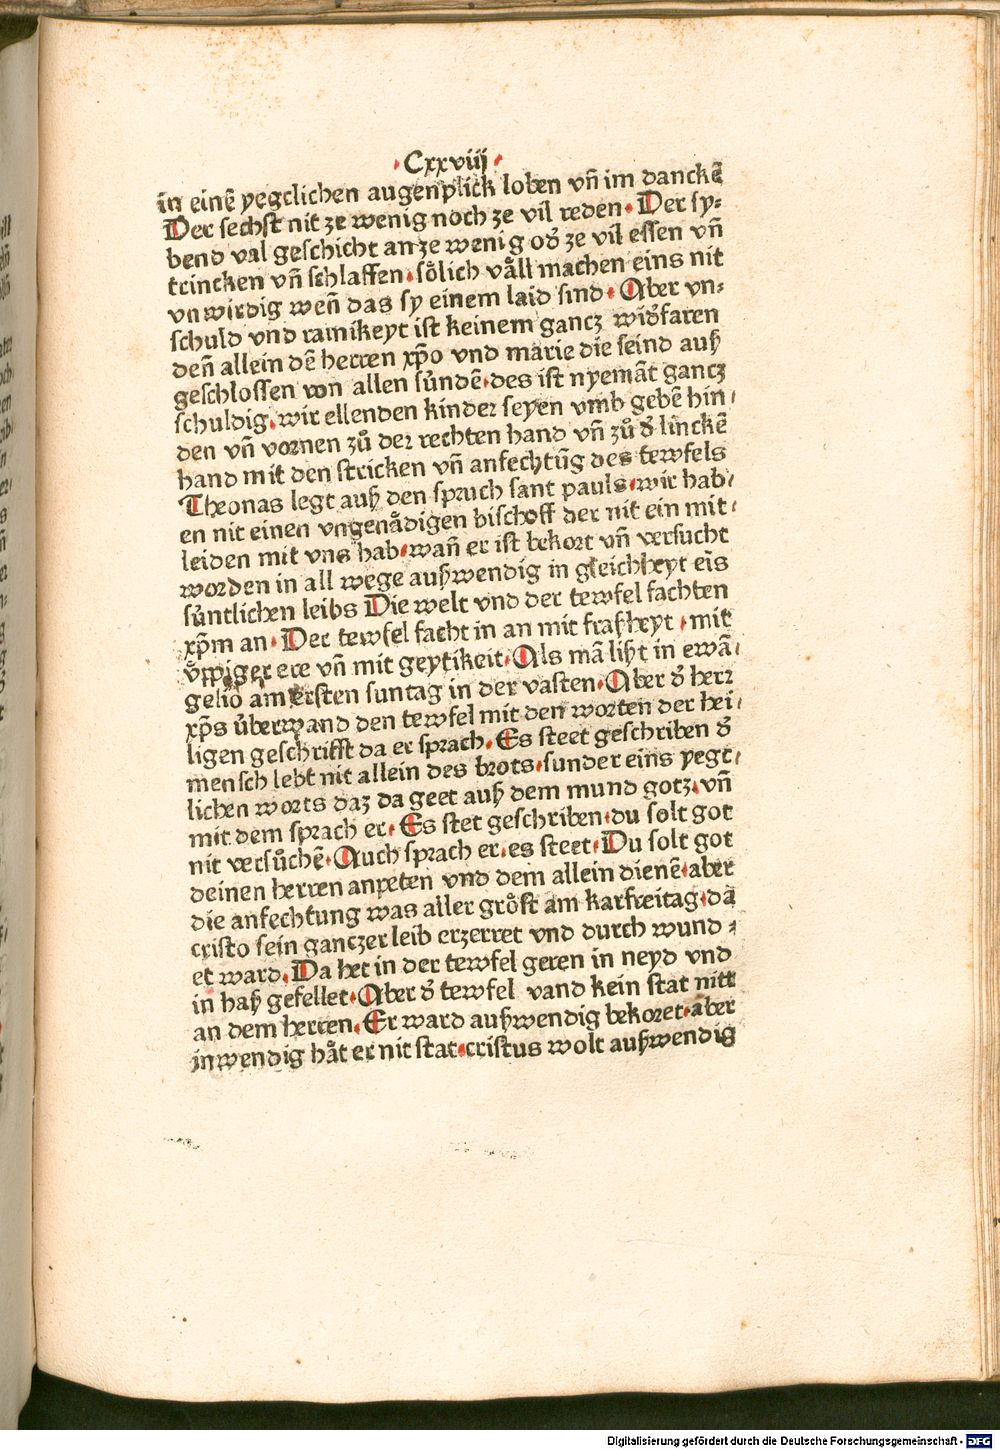 ·Cxxviij·
in einē yegclichen augenplick loben vñ im danckē
Der sechst nit ze wenig noch ze vil reden· Der sy⸗
bend val geschicht an ze wenig od̛ ze vil essen vñ
trincken vñ schlaffen·soͤlich vaͤll machen eins nit
vnwirdig weñ das sy einem laid sind· Aber vn⸗
schuld vnd rainikeyt ist keinem gancz wid̛faren
deñ allein dē herren xp̄o vnd marie die seind auß
geschlossen von allen súndē·des ist nyemāt gancz
schuldig·wir ellenden kinder seyen vmb gebē hin⸗
den vñ vornen zuͦ der rechten hand vñ zuͦ d̛ linckē
hand mit den stricken vñ anfechtūg des tewfels
Theonas legt auß den spruch sant pauls·wir hab⸗
en nit einen vngenaͤdigen bischoff der nit ein mit⸗
leiden mit vns hab·wañ er ist bekort vñ versucht
worden in all wege außwendig in gleichheyt eīs
súntlichen leibs Die welt vnd der tewfel fachten
xp̄m an· Der tewfel facht in an mit frasheyt ·mit
v̈ppiger ere vñ mit geytikeit·Als mā lißt in ewā⸗
gelio am ersten suntag in der vasten·Aber d̛ herr
xp̄s úberwand den tewfel mit den worten der hei⸗
ligen geschrifft da er sprach·Es steet geschriben d̛
mensch lebt nit allein des brots·sunder eins yegk⸗
lichen worts daz da geet auß dem mund gotz·vñ
mit dem sprach er·Es stet geschriben·du solt got
nit versuͦchē·Auch sprach er·es steet·Du solt got
deinen herren anpeten vnd dem allein dienē·aber
die anfechtung was aller groͤst am karfreitag·da
cristo sein ganczer leib erzerret vnd durch wund⸗
et ward·Da het in der tewfel geren in neyd vnd
in haß gefellet·Aber d̛ tewfel vand kein stat nitt
an dem herren·Er ward außwendig bekoret·aber
inwendig haͤt er nit stat·cristus wolt außwendig
Digitalisierung gefördert durch die Deutsche Forschungsgemeinschaft - DFG